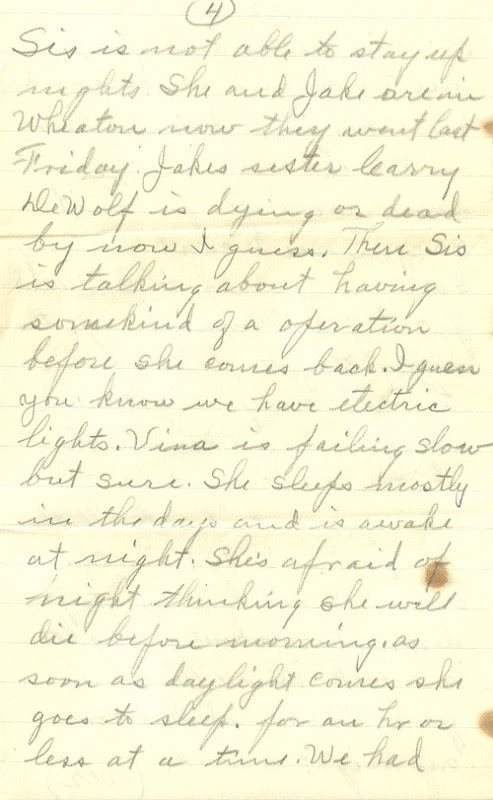 4
Sis is not able to stay up
nights She and Jake are in
Wheaton now they went last
Friday. Jakes sister Carry
DeWolf is dying or dead
by now I guess. Then Sis
is talking about having
somekind of a operation
before she comes back. I guess
you know we have electric
lights. Vina is failing slow
but sure. She sleeps mostly
in the days and is awake
at night. She's afraid of
night thinking she will
die before morning. as
soon as daylight comes she
goes to sleep. for an hr or
less at a time. We had